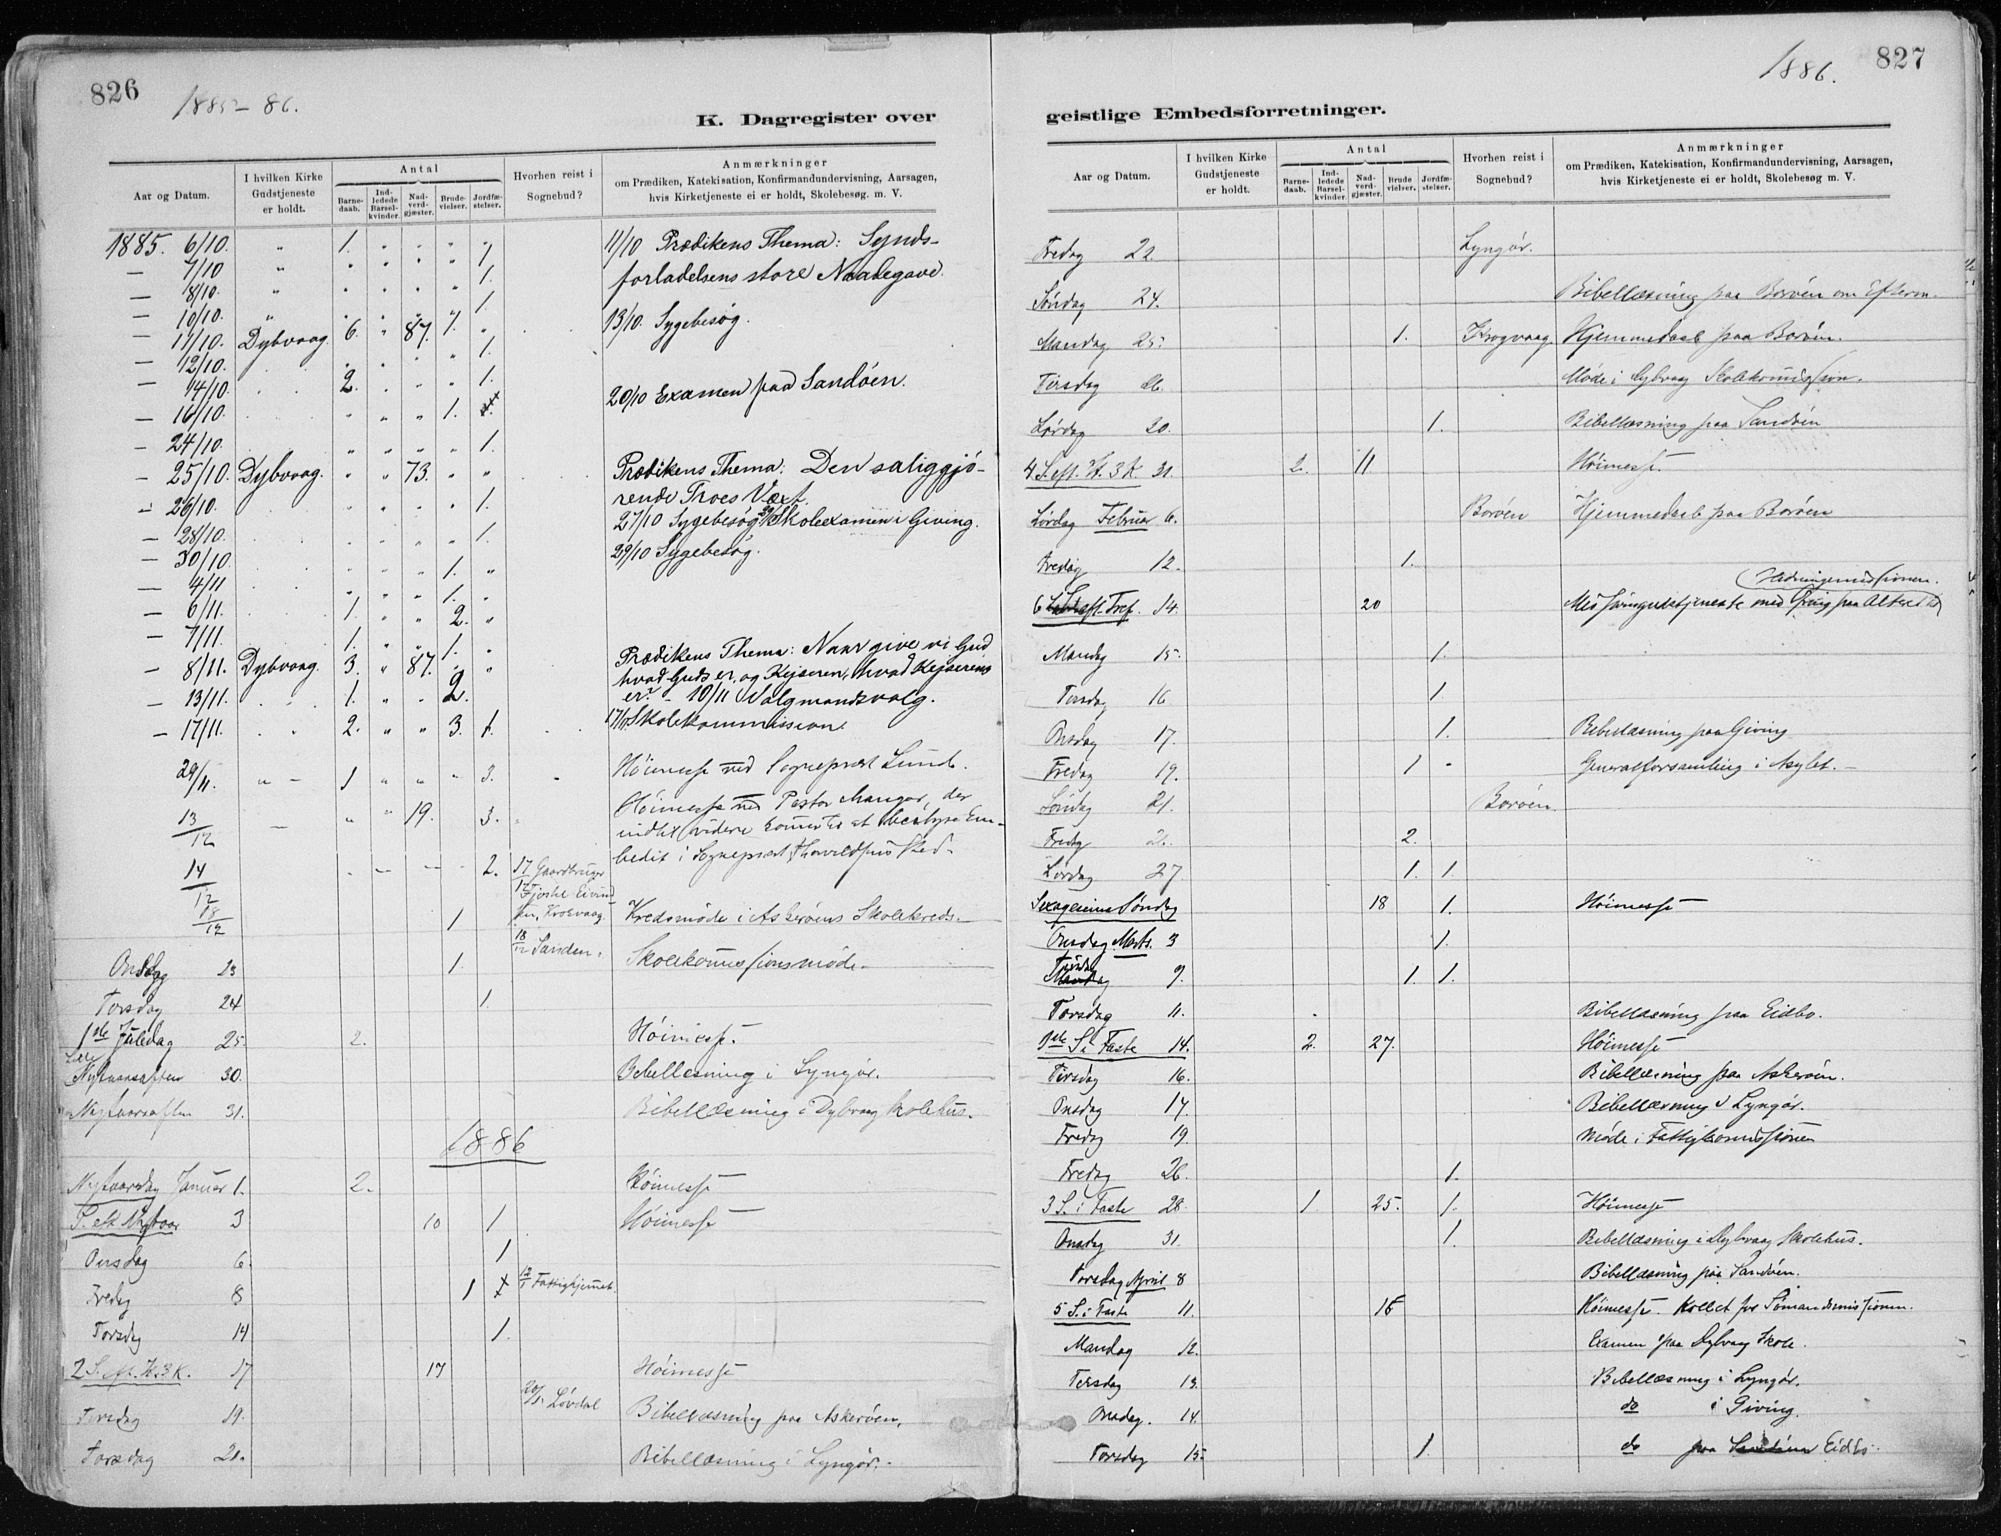 826
1885-86.
K. Dagregister over
Aar og Datum.
I hvilken Kirke Gudstjeneste er holdt.
Antal
Barnedaab.
Indledede Barselkvinder.
Nadverdgjæster.
Brudevielser.
Jordfæstelser.
Hvorhen reist i Sognebud?
Anmærkninger
om Prædiken, Katekisation, Konfirmandundervisning, Aarsagen,
hvis Kirketjeneste ei er holdt, Skolebesøg m. V.
1885. 6/10. " 1. " " " " 11/10 Prædikens Thema: Synds-
— 7/10 " " " " " 1. forladelsens store Naadegave.
— 8/10. " " " " " 1.
— 10/10. " " " " " 1. 13/10. Sygebesøg.
— 11/10. Dybvaag. 6. " 87. 1. "
— 12/10. 1.
— 14/10. 2. " " " 1. 20/10 Examen paa Sandøen.
— 16/10. " " " 1.
— 24/10. " " " " 1.
— 25/10. Dybvaag. " " 73. " " Prædikens Thema: Den saliggjø-
rende Troes Væxt.
— 26/10. 1. 27/10 Sygebesøg 29/10 Skoleexamen i Giving.
— 28/10. 1. 29/10 Sygebesøg.
— 30/10. 1. "
— 4/11 1. "
— 6/11. 1. " " 2. "
— 7/11. 1. " " 1. " Prædikens Thema: Naar give vi Gud
— 8/11. Dybvaag. 3. " 87. " " hvad Guds er, og Kejseren, hvad Kejserens
— 13/11. 1. " " 2. er? — 10/11 Valgmandsvalg.
— 17/11. 2. " " 3. 1. 17/11. Skolekommission.
29/11. " — 1 " " " 3. Høimesse ved Sogneprest Lund.
13/12 — " " 19. 3. Høimesse ved Pastor Mangor, der
indtil videre at bestyre Em-
14/12 2. 17/12 Gaardbruger bedet i Sogneprest Sted.
18/12 1 Krokvaag. Kredsmøde i Askerøens Skolekreds.
18/12 Sanden.
Onsdag 23 1. Skolekommissionsmøde.
Torsdag 24 1.
1ste Juledag 25. 2. Høimesse.
Lille Nytaarsaften 30. Bibellæsning i Lyngør.
Nytaarsaften 31. Bibellæsning i Dybvaag Skolehus.
1886
Nytaarsdag Januar 1. 2. Høimesse
S. eft. Nytaar 3 10 1 Høimesse
Onsdag 6. 1
Fredag 8 1 12/1 Fattighjemmet.
Torsdag 14 1.
2 S. eft. H. 3 K. 17 17 Høimesse
20/1. Løvdal
Tirsdag 19. Bibellæsning paa Askerøen.
Torsdag 21. Bibellæsning i Lyngør.
1886.
827
geistlige Embedsforretninger.
Aar og Datum.
I hvilken Kirke Gudstjeneste er holdt.
Antal
Barnedaab.
Indledede Barselkvinder.
Nadverdgjæster.
Brudevielser.
Jordfæstelser.
Hvorhen reist i Sognebud?
Anmærkninger
om Prædiken, Katekisation, Konfirmandundervisning, Aarsagen,
hvis Kirketjeneste ei er holdt, Skolebesøg m. V.
Fredag 22. Lyngør.
Søndag 24. Bibellæsning paa Borøen om Efterm.
Mandag 25. 1. Krogvaag. Hjemmedaab paa Borøen.
Tirsdag 26. Møde i Dybvaag Skolekommission.
Lørdag 30. 1. Bibellæsning paa Sandøen
4 S. eft. H. 3 K. 31. 2. 11 Høimesse.
Lørdag Februar 6. Borøen Hjemmedaab paa Borøen
Fredag 12. 1.
Hedningemissionen.
6 S. eft. 14. 20 Missionsgudstjeneste med paa Alteret
Mandag 15. 1.
Tirsdag 16 1.
Onsdag 17. 1. Bibellæsning paa Giving
Fredag 19. 1 " Generalforsamling i Asylet.
Søndag 21. Borøen.
Fredag 26. 2.
Lørdag 27. 1. 1.
Sexagesima Søndag 18 1. Høimesse
Onsdag Marts. 3 1.
Tirsdag 9. 1 1.
Torsdag 11. Bibellæsning paa Eidbo.
1ste S. i Faste 14. 2. 27. Høimesse
Tirsdag 16. Bibellæsning paa Askerøen.
Onsdag 17. Bibellæsning i Lyngør.
Fredag 19. Møde i Fattigkommissionen
Fredag 26. 1.
3 S. i Faste 28. 1. 25. 1. Høimesse
Onsdag 31. 1. Bibellæsning i Dybvaag Skolehus.
Torsdag April 8 Bibellæsning paa Sandøen.
5 S. i Faste 11. 15 Høimesse. Kollekt for Sømandsmissionen.
Mandag 12. Examen paa Dybvaag Skole.
Tirsdag 13. Bibellæsning i Lyngør.
Onsdag. 14. do i Giving.
Torsdag 15. 1. do paa Eidbo.